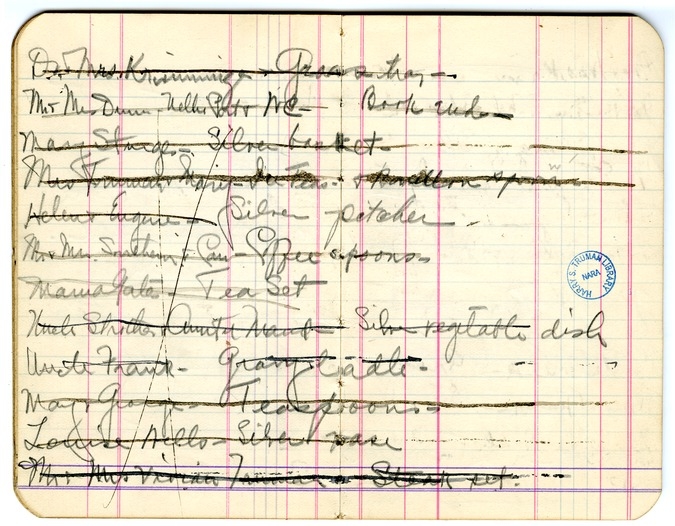 Dr. + Mrs. Krimminger - Glass tray -
Mr + Mrs Dunn - Nellie Pat + NC - Book ends -
Mary Sturges - Silver basket -
Mrs Truman + Mary - Ice Teas - + Bouillon spoons
Helen + Eugene - Silver pitcher -
Mr + Mrs. Southern + Cam - Coffee spoons -
Mama Gates - Tea Set
Uncle Strother + Aunt Maud - Silver vegetable dish
Uncle Frank - Gravy ladle -
May + George - Teaspoons -
Louise Wells - Silver vase
Mr + Mrs Vivian Truman - Steak set.
HARRY S. TRUMAN LIBRARY
NARA